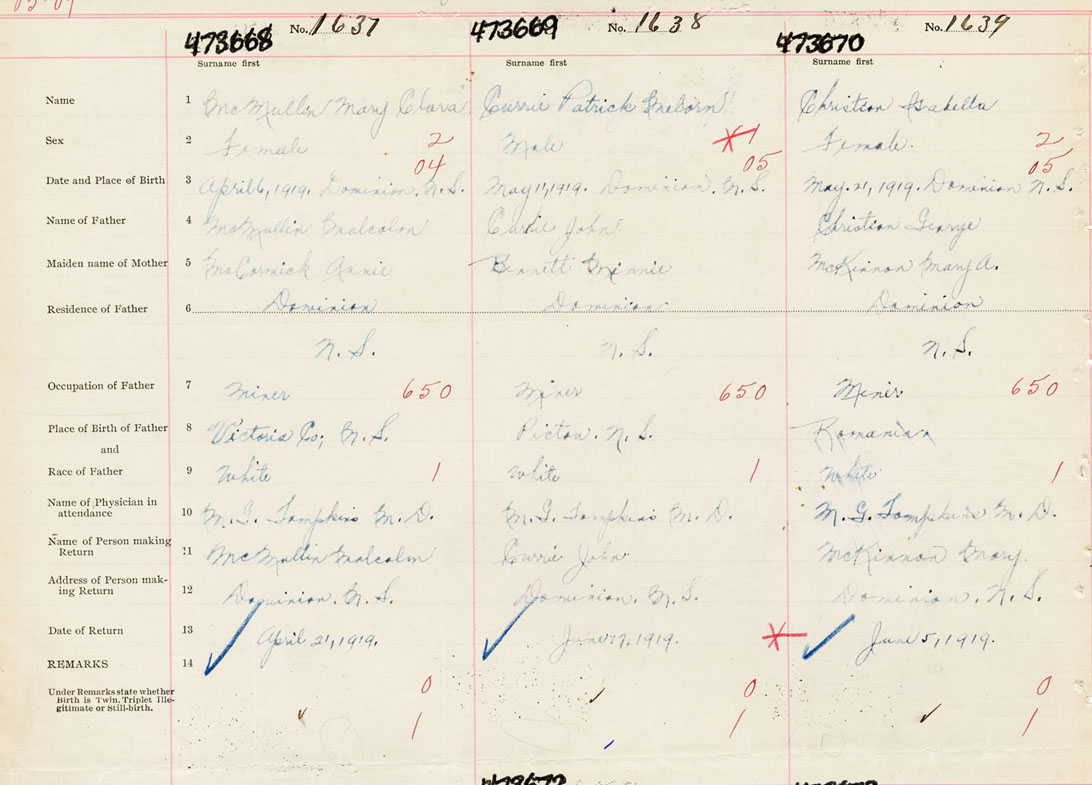 473668 No. 1637 473669 No. 1638 473670 No. 1639
Surname first Surname first Surname first
Name 1 McMullin Mary Clara Currie Patrick Christian Isabella
Sex 2 Female 2 Male 1 Female. 2
04 05 05
Date and Place of Birth 3 April 6, 1919. Dominion, N.S. May 11, 1919. Dominion N.S. May. 21, 1919. Dominion N.S.
Name of Father 4 McMullin Malcolm Currie John Christian George
Maiden name of Mother 5 McCormick Annie Bennett Minnie McKinnon Mary A.
Residence of Father 6 Dominion Dominion Dominion
N.S. N.S. N.S.
Occupation of Father 7 Miner 650 Miner 650 Miner 650
Place of Birth of Father 8 Victoria Co; N.S. Pictou. N.S. Romanian
and
Race of Father 9 White 1 White 1 White 1
Name of Physician in
attendance 10 M.G. Tompkins M.D. M.G. Tompkins M.D. M.G. Tompkins M.D.
Name of Person making
Return 11 McMullin Malcolm Currie John McKinnon Mary.
Address of Person mak-
ing Return 12 Dominion. N.S. Dominion. N.S. Dominion. N.S.
Date of Return 13 April 21, 1919. June 17, 1919. June 5, 1919.
REMARKS 14
Under Remarks state whether
Birth is Twin, Triplet Ille-
gitimate or Still-birth.
0 0 0
1 1 1